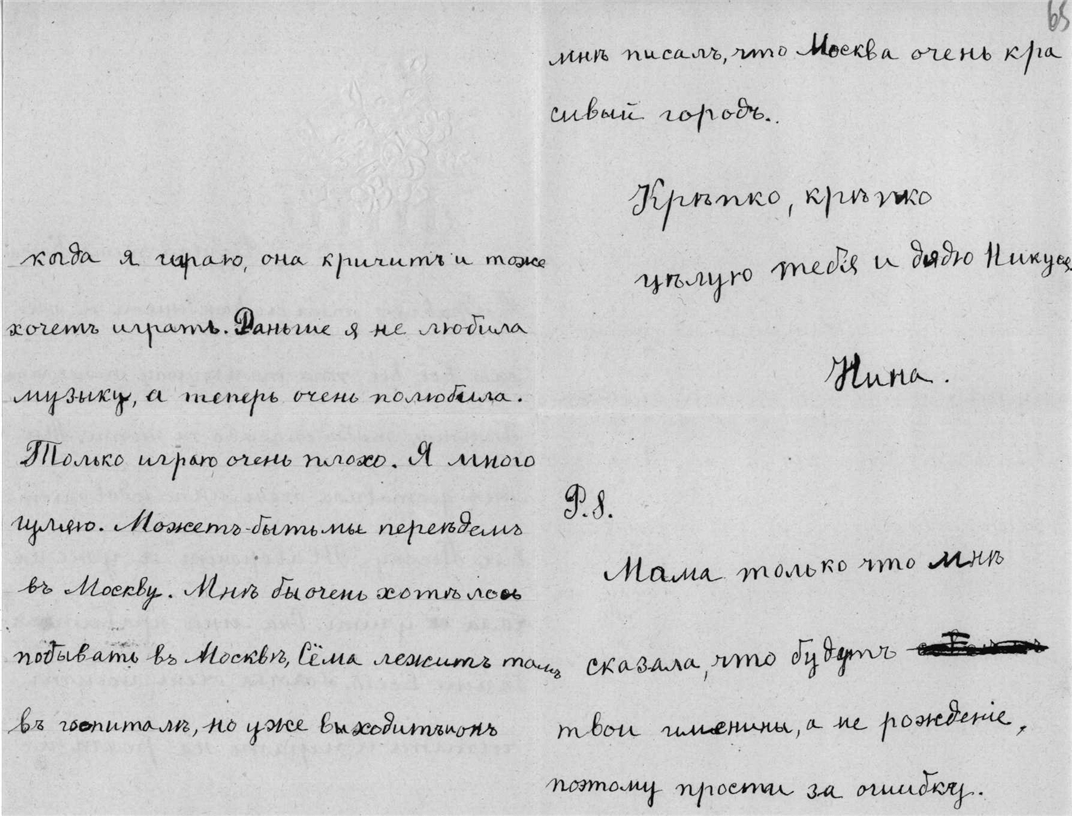 когда я играю, она кричитъ и тоже
хочетъ играть. Раньше я не любила
музыку, а теперь очень полюбила.
Только играю очень плохо. Я много
гуляю. Можетъ-быть мы переѣдемъ
въ Москву. Мнѣ бы очень хотѣлось
побывать въ Москвѣ, Сёма лежитъ тамъ
въ госпиталѣ, но уже выходитъ и онъ
65
мнѣ писалъ, что Москва очень кра
сивый городъ.
Крѣпко, крѣпко
цѣлую тебя и дядю Никуся
Нина.
P.S.
Мама только что мнѣ
сказала, что будутъ
твои именины, а не рожденіе,
поэтому прости за ошибку.